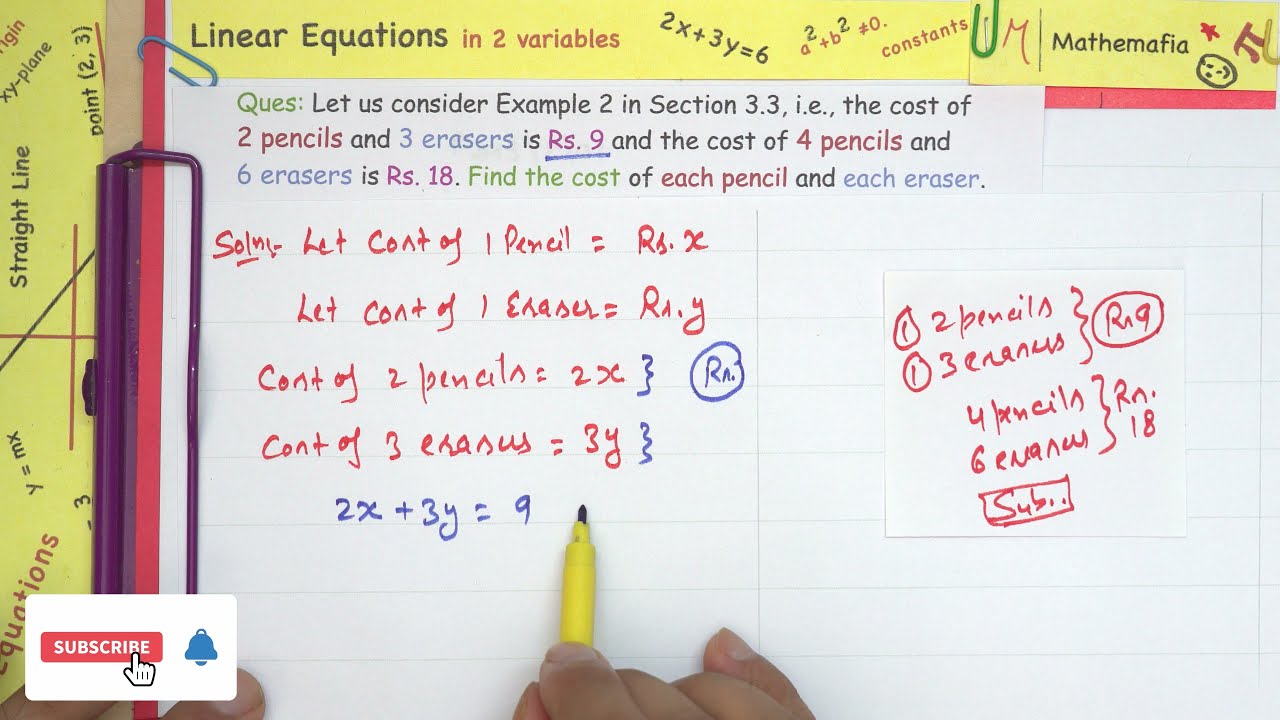 Linear Equations in 2 variables
2x+3y=6
a²+b² ≠0.
constants
M
Mathemafia
π
Ques: Let us consider Example 2 in Section 3.3, i.e., the cost of
2 pencils and 3 erasers is Rs. 9 and the cost of 4 pencils and
6 erasers is Rs. 18. Find the cost of each pencil and each eraser.
xy-plane
point (2, 3)
Straight Line
y = mx
Soln:- Let Cost of 1 Pencil = Rs. x
Let cost of 1 Eraser = Rs. y
Cost of 2 pencils = 2x } Rs.
Cost of 3 erasers = 3y }
2x + 3y = 9
① 2 pencils
① 3 erasers } Rs 9
4 pencils
6 erasers } Rs. 18
Sub..
SUBSCRIBE